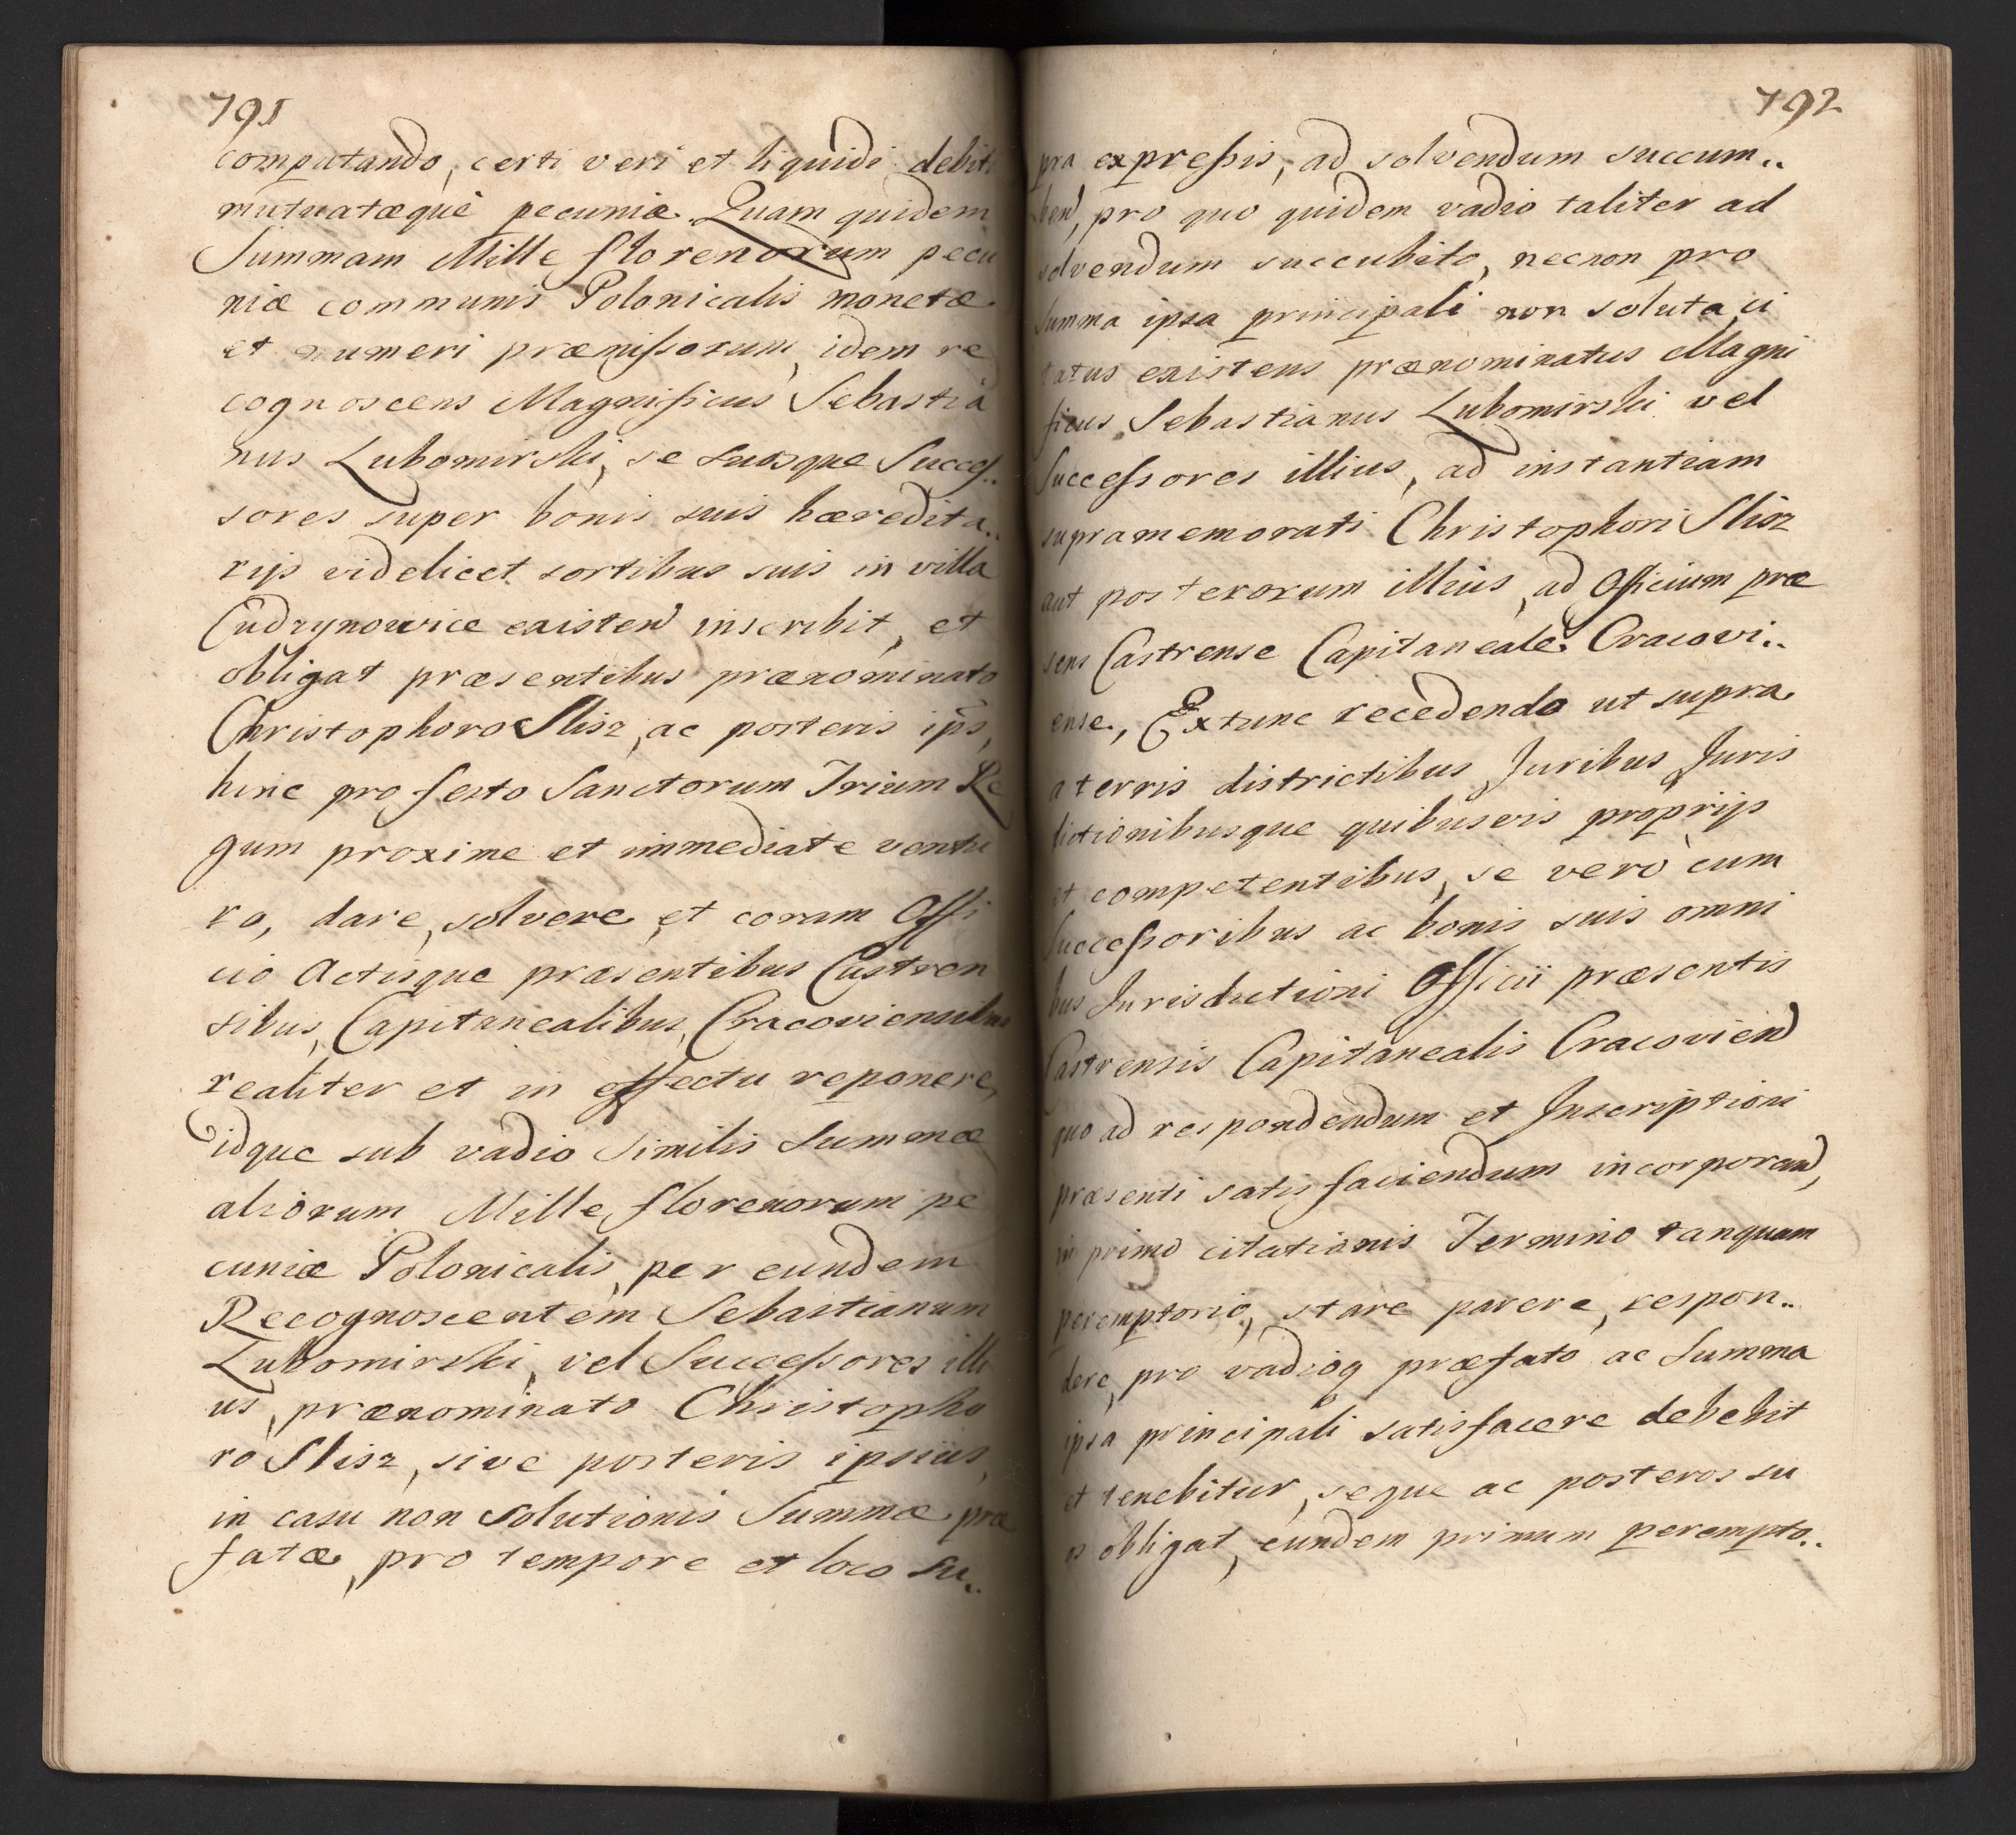 791
computando, certi veri et liquidi debiti
mutuatæquè pecuniæ. Quam quidem
Summam Mille florenorum pecu
niæ communis Polonicalis monetæ
et numeri præmissorum, idem re
cognoscens Magnificus Sebastia
nus Lubomirski, se suosque Succes..
sores super bonis suis hæredita..
rijs videlicet sortibus suis in villa
Cudzynowice existen inscribit, et
obligat præsentibus prænominato
Christophoro Slisz, ac posteris ips,
hinc pro festo Sanctorum Trium Re
gum proxime et immediate ventu
ro, dare, solvere, et coram Offi
cio Actisque præsentibus Castren
sibus, Capitanealibus, Cracoviensibus
realiter et in effectu reponere,
idque sub vadio similis summæ
aliorum Mille florenorum pe
cuniæ Polonicalis, per eundem
Recognoscentem Sebastianum
Lubomirski, vel Successores illi
us, prænominato Christopho
ro Slisz, sive posteris ipsius,
in casu non solutionis Summæ præ
fatæ, pro tempore et loco su..
792
pra expressis, ad solvendum succum..
ben, pro quo quidem vadio taliter ad
solvendum succubito, necnon pro
summa ipsa principali non soluta, ci
tatus existens prænominatus Magni
ficus Sebastianus Lubomirski vel
Successores illius, ad instantiam
supramemorati Christophori Slisz
aut posterorum illius, ad Officium præ
sens Castrense Capitaneale Cracovi..
ense, Extunc recedendo ut supra
a terris districtibus Juribus Juris
dictionibusque quibusvis proprijs
et competentibus, se verò cum
Successoribus ac bonis suis omni
bus Jurisdictioni Officii præsentis
Castrensis Capitanealis Cracovien
quo ad respondendum et Inscriptioni
præsenti satisfaciendum incorporan,
in primo citationis Termino tanquam
peremptorio, stare parere, respon..
dere, pro vadioq præfato ac Summa
ipsa principali satisfacere debebit
et tenebitur, seque ac posteros su
os obligat, eundem primum perempto..